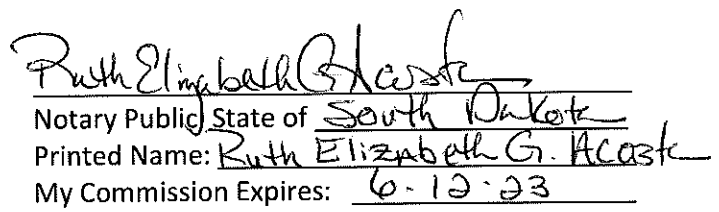 Ruth Elizabeth G Acosta
Notary Public, State of South Dakota
Printed Name: Ruth Elizabeth G. Acosta
My Commission Expires: 6.12.23